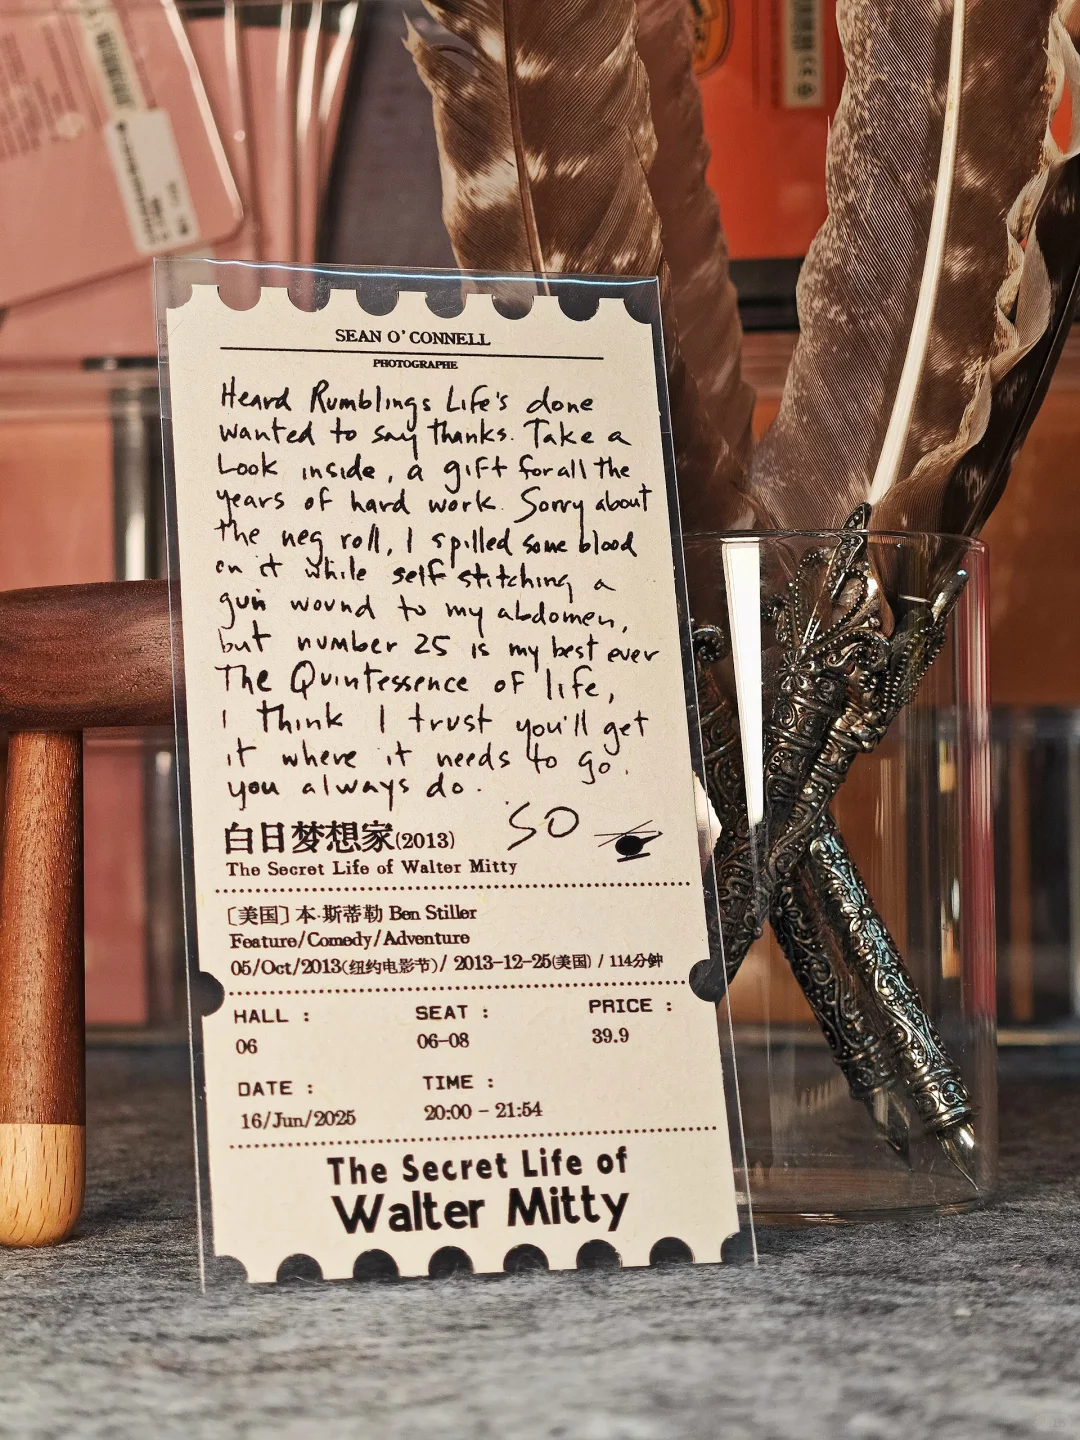 SEAN O'CONNELL
PHOTOGRAPHE
Heard Rumblings Life's done
wanted to say thanks. Take a
Look inside, a gift for all the
years of hard work. Sorry about
the neg roll, I spilled some blood
on it while self stitching a
gun wound to my abdomen,
but number 25 is my best ever
The Quintessence of life,
I think I trust you'll get
it where it needs to go.
you always do.
SO
白日梦想家(2013)
The Secret Life of Walter Mitty
［美国］本·斯蒂勒 Ben Stiller
Feature/Comedy/Adventure
05/Oct/2013(纽约电影节)/ 2013-12-25(美国) / 114分钟
HALL : SEAT : PRICE :
06 06-08 39.9
DATE : TIME :
16/Jun/2025 20:00 - 21:54
The Secret Life of
Walter Mitty